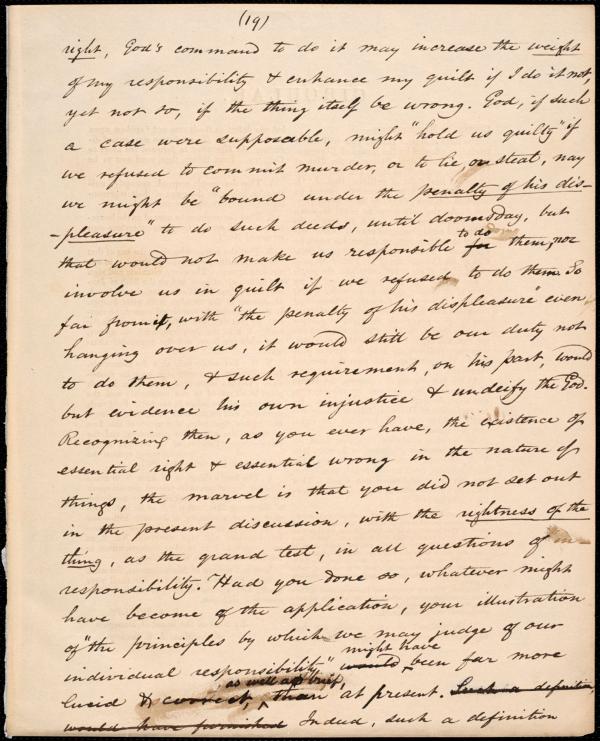 (19)
right, God's command to do it may increase the weight
of my responsibility & enhance my guilt if I do it not,
yet not so, if the thing itself be wrong. God, if such
a case were supposable, might "hold us guilty" if
we refused to commit murder, or to lie, or steal, nay
we might be "bound under the penalty of his dis-
-pleasure" to do such deeds, until doomsday, but
to do
that would not make us responsible for them, nor
involve us in guilt if we refused to do them. So
far from it, with "the penalty of his displeasure" even
hanging over us, it would still be our duty not
to do them, & such requirement, on his part, would
but evidence his own injustice & undeify the God.
Recognizing then, as you ever have, the existence of
essential right & essential wrong in the nature of
things, the marvel is that you did not set out
in the present discussion, with the rightness of the
thing, as the grand test, in all questions of
responsibility. Had you done so, whatever might
have become of the application, your illustration
of "the principles by which we may judge of our
might have
individual responsibility," would been far more
as well as brief,
lucid & correct, than at present. Such a definition,
would have furnished Indeed, such a definition